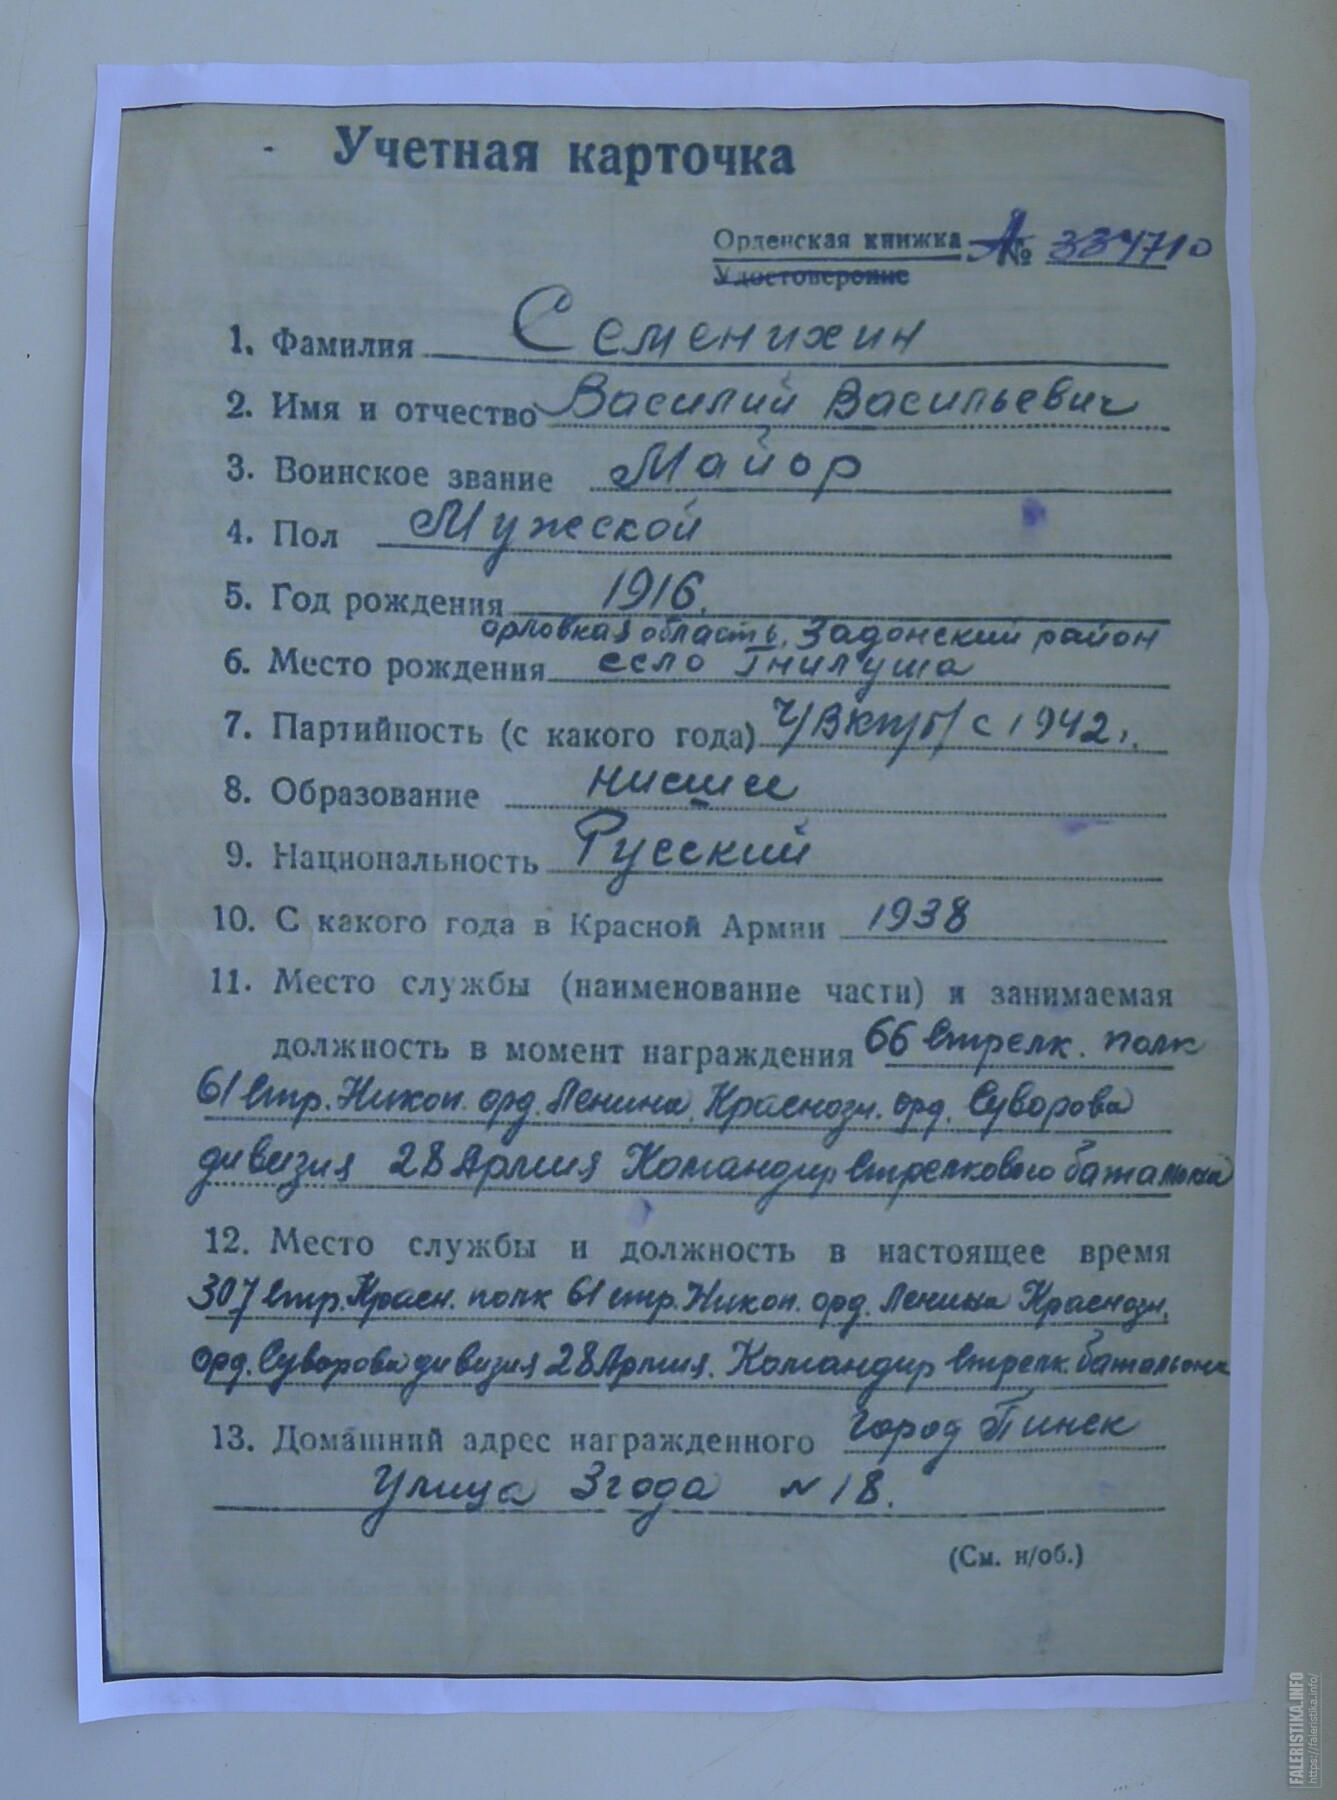 Учетная карточка
Орденская книжка А № 334710
Удостоверение
1. Фамилия Семенихин
2. Имя и отчество Василий Васильевич
3. Воинское звание Майор
4. Пол Мужской
5. Год рождения 1916.
орловкая область, Задонский район
6. Место рождения село Гнилуша
7. Партийность (с какого года) Ч/ВКП/б/ с 1942г.
8. Образование нисшее
9. Национальность Русский
10. С какого года в Красной Армии 1938
11. Место службы (наименование части) и занимаемая
должность в момент награждения 66 стрелк. полк
61 стр. Никоп. орд. Ленина, Краснозн. орд. Суворова
дивизия 28 Армия Командир стрелкового батальона
12. Место службы и должность в настоящее время
307 стр. Красн. полк 61 стр. Никоп. орд. Ленина Краснозн.
орд. Суворова дивизия 28 Армия. Командир стрелк. батальона
13. Домашний адрес награжденного город Пинск
Улица Згода № 18.
(См. н/об.)
FALERISTIKA.INFO
https://faleristika.info/